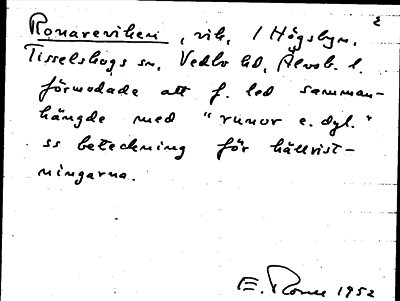 2
Ronareviken, vik, / Högsbyn,
Tisselskogs sn, Vedbo hd, Älvsb. l.
förmodade att f. led samman-
hängde med "runor e. dyl."
ss beteckning för hällrist-
ningarna.
E. 1952